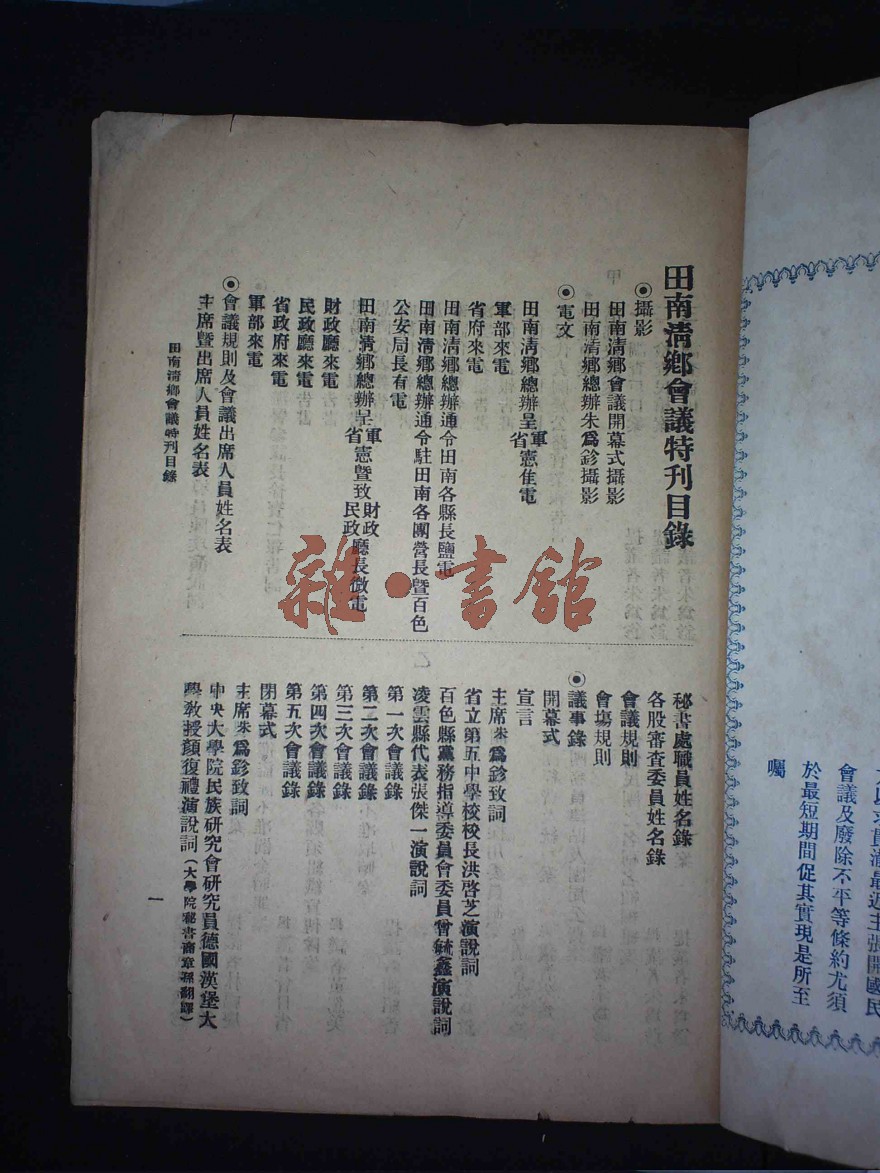 於最短期間促其實現是所至
囑
田南清鄉會議特刊目錄
◉攝影
田南清鄉會議開幕式攝影
田南清鄉總辦朱爲鉁攝影
◉電文
田南清鄉總辦呈軍省憲隹電
軍部來電
省府來電
田南清鄉總辦通令田南各縣長鹽電
田南清鄉總辦通令駐田南各團營長曁百色
公安局長有電
田南淸鄉總辦呈軍省憲曁致財政民政廳長微電
財政廳來電
民政廳來電
省政府來電
軍部來電
◉會議規則及會議出席人員姓名表
主席曁出席人員姓名表
秘書處職員姓名錄
各股審查委員姓名錄
會議規則
會塲規則
◉議事錄
開幕式
宣言
主席朱爲鉁致詞
省立第五中學校校長洪啓芝演說詞
百色縣黨務指導委員會委員曾毓鑫演說詞
凌雲縣代表張傑一演說詞
第一次會議錄
第二次會議錄
第三次會議錄
第四次會議錄
第五次會議錄
閉幕式
主席朱爲鉁致詞
中央大學院民族研究會研究員德國漢堡大
學敎授顏復禮演說詞(大學院秘書商章孫翻譯)
田南淸鄉會議特刊目錄
一
雜·書館